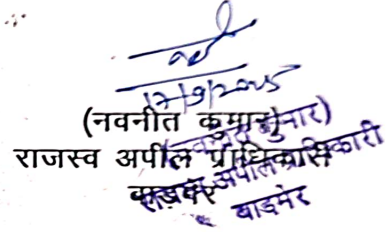 17/9/2025
(नवनीत कुमार)
राजस्व अपील प्राधिकारी
बाड़मेर
(नवनीत कुमार)
राजस्व अपील प्राधिकारी
बाडमेर